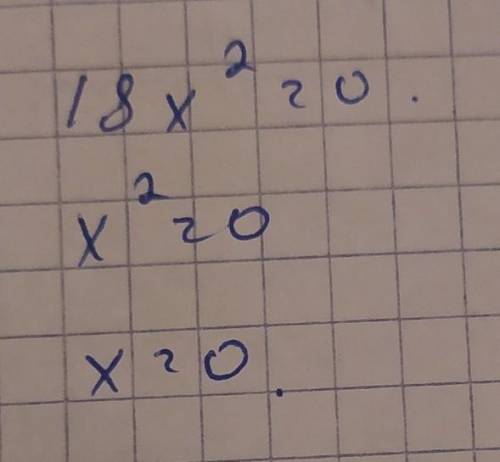 18x² = 0.
x² = 0
x = 0.